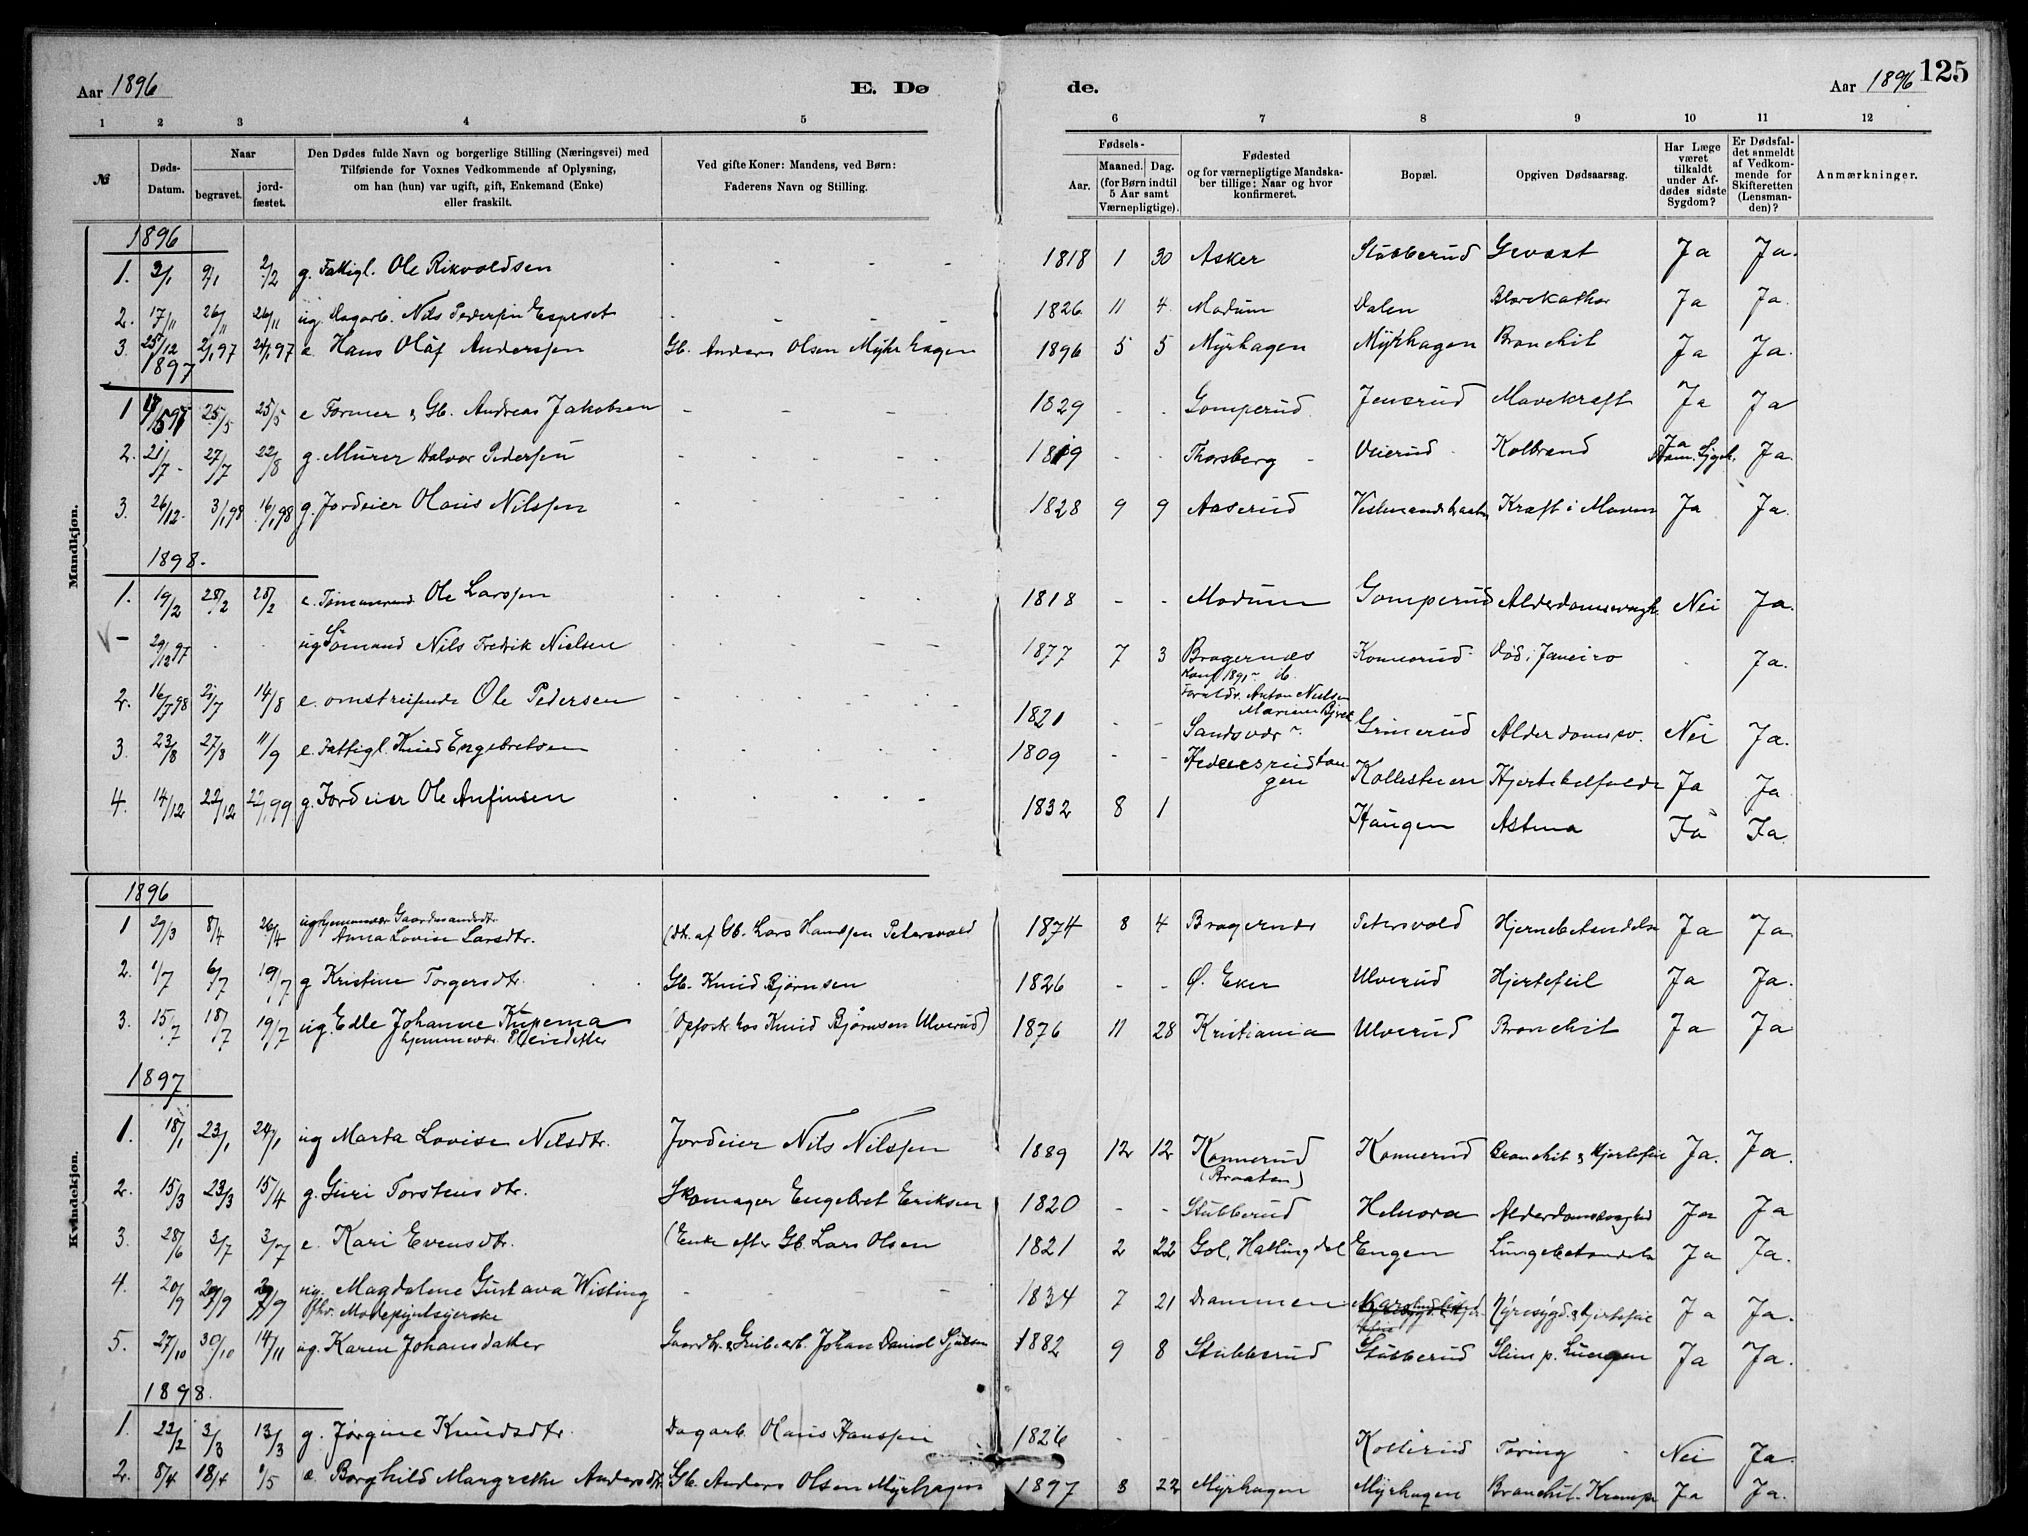 Aar 1896 E. Dø de. Aar 1896 125
1 2 3 4 5 6 7 8 9 10 11 12
№
Døds-Datum.
Naar
begravet. jord-fæstet.
Den Dødes fulde Navn og borgerlige Stilling (Næringsvei) med
Tilføiende for Voxnes Vedkommende af Oplysning,
om han (hun) var ugift, gift, Enkemand (Enke)
eller fraskilt.
Ved gifte Koner: Mandens, ved Børn:
Faderens Navn og Stilling.
Fødsels-
Aar. Maaned. Dag.
(for Børn indtil
5 Aar samt
Værnepligtige).
Fødested
og for værnepligtige Mandska-
ber tillige: Naar og hvor
konfirmeret.
Bopæl.
Opgiven Dødsaarsag.
Har Læge
været
tilkaldt
under Af-
dødes sidste
Sygdom?
Er Dødsfal-
det anmeldt
af Vedkom-
mende for
Skifteretten
(Lensman-
den)?
Anmærkninger.
Mandkjøn.
1896
1. 3/1 9/1 2/2 g. Fattigl. Ole Rikvoldsen - - - - 1818 1 30 Asker Stubberud Gevæxt Ja Ja.
2. 17/11 26/11 26/11 ug. Dagarb. Nils Pedersen Espeset - - - - 1826 11 4 Modum Dalen Blærekathar Ja Ja.
3. 25/12 2/1 97 24/1 97 e. Hans Olaf Anderssen Gb. Anders Olsen Myhrhagen 1896 5 5 Myrhagen Myrhagen Bronchit Ja Ja.
1897
1 17/5 97 25/5 25/5 e Former & Gb. Andreas Jakobsen - - - 1829 - - Gomperud Jensrud Mavekræft Ja Ja
2. 21/7 27/7 22/8 g. Murer Halvor Pedersen - - - 1819 - - Thorsberg Veierud Kolbrand Ja Ja.
3. 26/12 3/1 98 16/1 98 g. Jordeier Olaus Nilssen - - - 1828 9 9 Aaserud Kræft i Maven Ja Ja.
1898.
1. 19/2 28/2 28/2 e. Tømmermand Ole Larssen - - - 1818 - - Modum Gomperud Alderdomssvagh. Nei Ja.
- 29/12 97 . . ug Sømand Nils Fredrik Nielsen - - - 1877 7 3 Bragernæs Konnerud Død i Janeiro . Ja.
Konf 1891
Foreldr. Anton Nielsen
2. 16/7 98 21/7 14/8 e. omstreifende Ole Pedersen - - - 1821 - - Sandsvær Grinerud Alderdomssv. Nei Ja.
3. 23/8 27/8 11/9 e. Fattigl. Knud Engebretsen - - - 1809 - - Kollesteien Ja Ja
4. 14/12 22/12 22/1 99 g. Jordeier Ole Anfinsen - - - 1832 8 1 Haugen Astma Ja Ja.
Kvindekjøn.
1896
1 29/3 8/4 26/4 ug hjemmevær Gaardmandsdtr.
Anna Lovise Larsdtr. (Dtr. af Gb. Lars Hanssen Petersvold 1874 8 4 Bragernes Petersvold Hjernebetendelse Ja Ja.
2. 1/7 6/7 19/7 g Kristine Torgersdtr. Gb. Knud Bjørnsen 1826 - - Ø. Eker Ulverud Hjertefeil Ja Ja.
3. 15/7 18/7 19/7 ug. Edle Johanne (Opfostr. hos Knud Bjørnsen Ulverud) 1876 11 28 Kristiania Ulverud Bronchit Ja Ja
hjemmevær. Pleiedatter
1897
1. 18/1 23/1 24/1 ug Marta Lovise Nilsdtr. Jordeier Nils Nilssen 1889 12 12 Konnerud Konnerud Bronchit & Hjertefeil Ja. Ja.
(Braaten)
2. 15/3 23/3 15/4 g. Guri Torstensdtr. Skomager Engebret Eriksen 1820 - - Stubberud Helnora Alderdomssvaghed Ja Ja
3. 28/6 3/7 3/7 e. Kari Evensdtr. (Enke efter Gb. Lars Olsen 1821 2 22 Gol, Hallingdal Engen Lungebetændelse Ja Ja.
4. 20/9 27/9 27/9 ug. Magdalene Gustava Wisting - - - - 1834 7 21 Drammen Nyresygd. & Hjertefeil Ja Ja.
5. 27/10 30/10 14/11 ug. Karen Johansdatter Gaardbr. & Grubearb. Johan Daniel 1882 9 8 Stubberud Stubberud Slim p. Lungen Ja Ja.
1898.
1. 22/2 3/3 13/3 g. Jørgine Knudsdtr. Dagarb. Olaus Hanssen 1826 - - Kollerud Tæring Nei Ja.
2. 8/4 18/4 1/5 e. Borghild Margrethe Andersdtr. Gb. Anders Olsen Myrhagen 1897 8 22 Myrhagen Myrhagen Bronchit. Krampe Ja Ja.